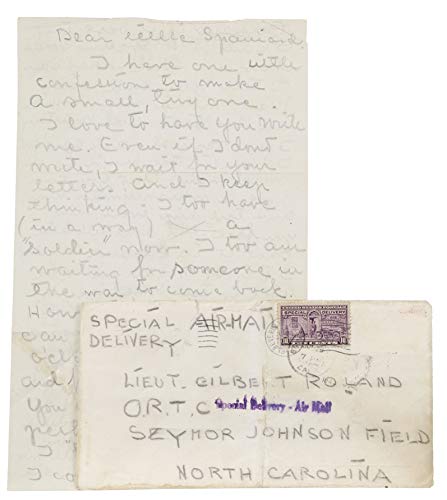 Dear little Spaniard.
I have one little
confession to make
a small, tiny one.
I love to have you write
me. Even if I dont
write, I wait for your
letter. And I keep
thinking. I too have
(in a way) a
"soldier" now. I too am
waiting for someone in
the war to come back.
can
You
I
SPECIAL AIR-MAIL
DELIVERY
SPECIAL DELIVERY
LIEUT. GILBERT ROLAND
O.R.T.C Special Delivery - Air Mail
SEYMOR JOHNSON FIELD
NORTH CAROLINA